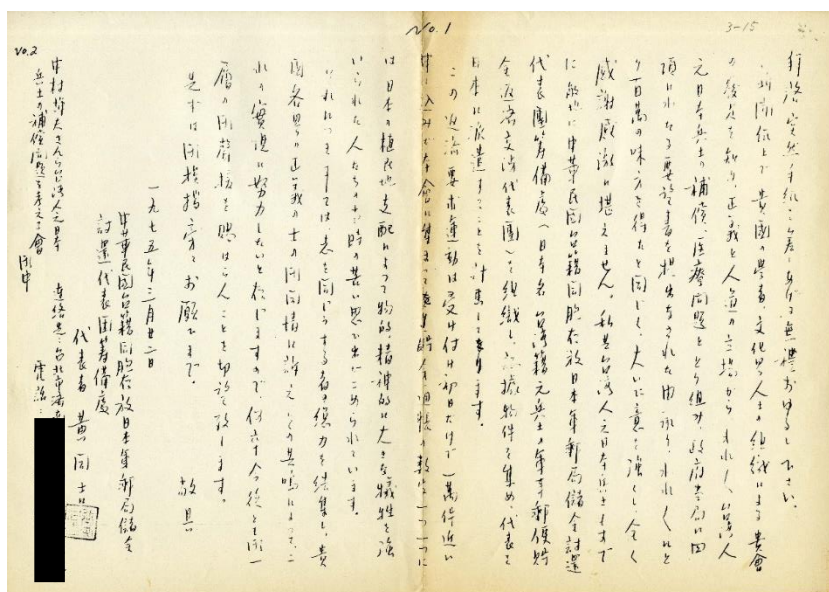 No.1
3-15
拝啓 突然手紙を差しあげる無禮おゆるし下さい。
新聞紙上で貴國の學者、文化界人士の組織による貴會
の發足を知り、正義と人道の立場からわれわれ台湾人
元日本兵士の補償、医療問題ととり組み、政府当局に四
項にわたる要望書を提出なされた由承り、われわれは
百萬の味方を得たと同じく、大いに意を強くし、全く
感謝感激に堪えません。私共台湾人元日本兵もすで
に当地に中華民國台籍同胞存放日本軍郵局儲金討還
代表團籌備處(日本名 台湾籍元兵士の軍事郵便貯
金返済交渉代表團)を組織し、証拠物件を集め、代表を
日本に派遣することを計画しております。
この返済要求運動は受け付け初日だけで一萬件近い
申し込みが本會に
は日本の植民地支配によって物的、精神的に大きな犠牲を強
いられた人たちの当時の苦い思い出がこめられています。
これにつきましては志を同じうする者の總力を結集し、貴
國各界の正義の士の御同情に訴え、その共鳴によって、こ
れの實現に努力したいと存じますので、何卒今後とも御一
層の御聲援を賜はらんことを切望致します。
先ずは御挨拶旁々お願いまで。
敬具
一九七五年三月廿一日
中華民國台籍同胞存放日本軍郵局儲金
討還代表團籌備處
代表者 黄
連絡處:台北市
電話:
No.2
中村輝夫さんら台湾人元日本
兵士の補償問題を考える會 御中